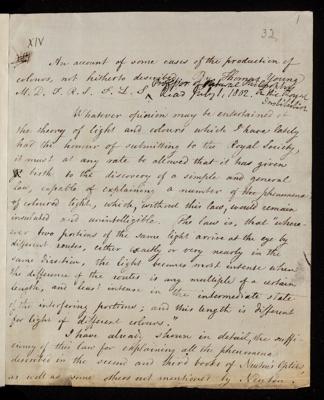 1
32
XIV
An account of some cases of the production of
colours, not hitherto described. By Thomas Young
Professor of Natural Philosophy
in the Royal
Institution
M. D. F. R. S. F. L. S. Read July 1, 1802.
Whatever opinion may be entertained of
the theory of light and colours which I have lately
had the honour of submitting to the Royal Society,
it must at any rate be allowed that it has given
birth to the discovery of a simple and general
law, capable of explaining a number of the phenomena
of coloured light, which, without this law, would remain
insulated and unintelligible. The law is, that "where-
ever two portions of the same light arrive at the eye by
different routes, either exactly or very nearly in the
same direction, the light becomes most intense when
the difference of the routes is any multiple of a certain
length, and least intense in the intermediate state
of the interfering portions; and this length is different
for light of different colours."
I have already shown in detail, the suffi-
ciency of this law for explaining all the phenomena
described in the second and third books of Newton's Optics,
as well as some others not mentioned by Newton.